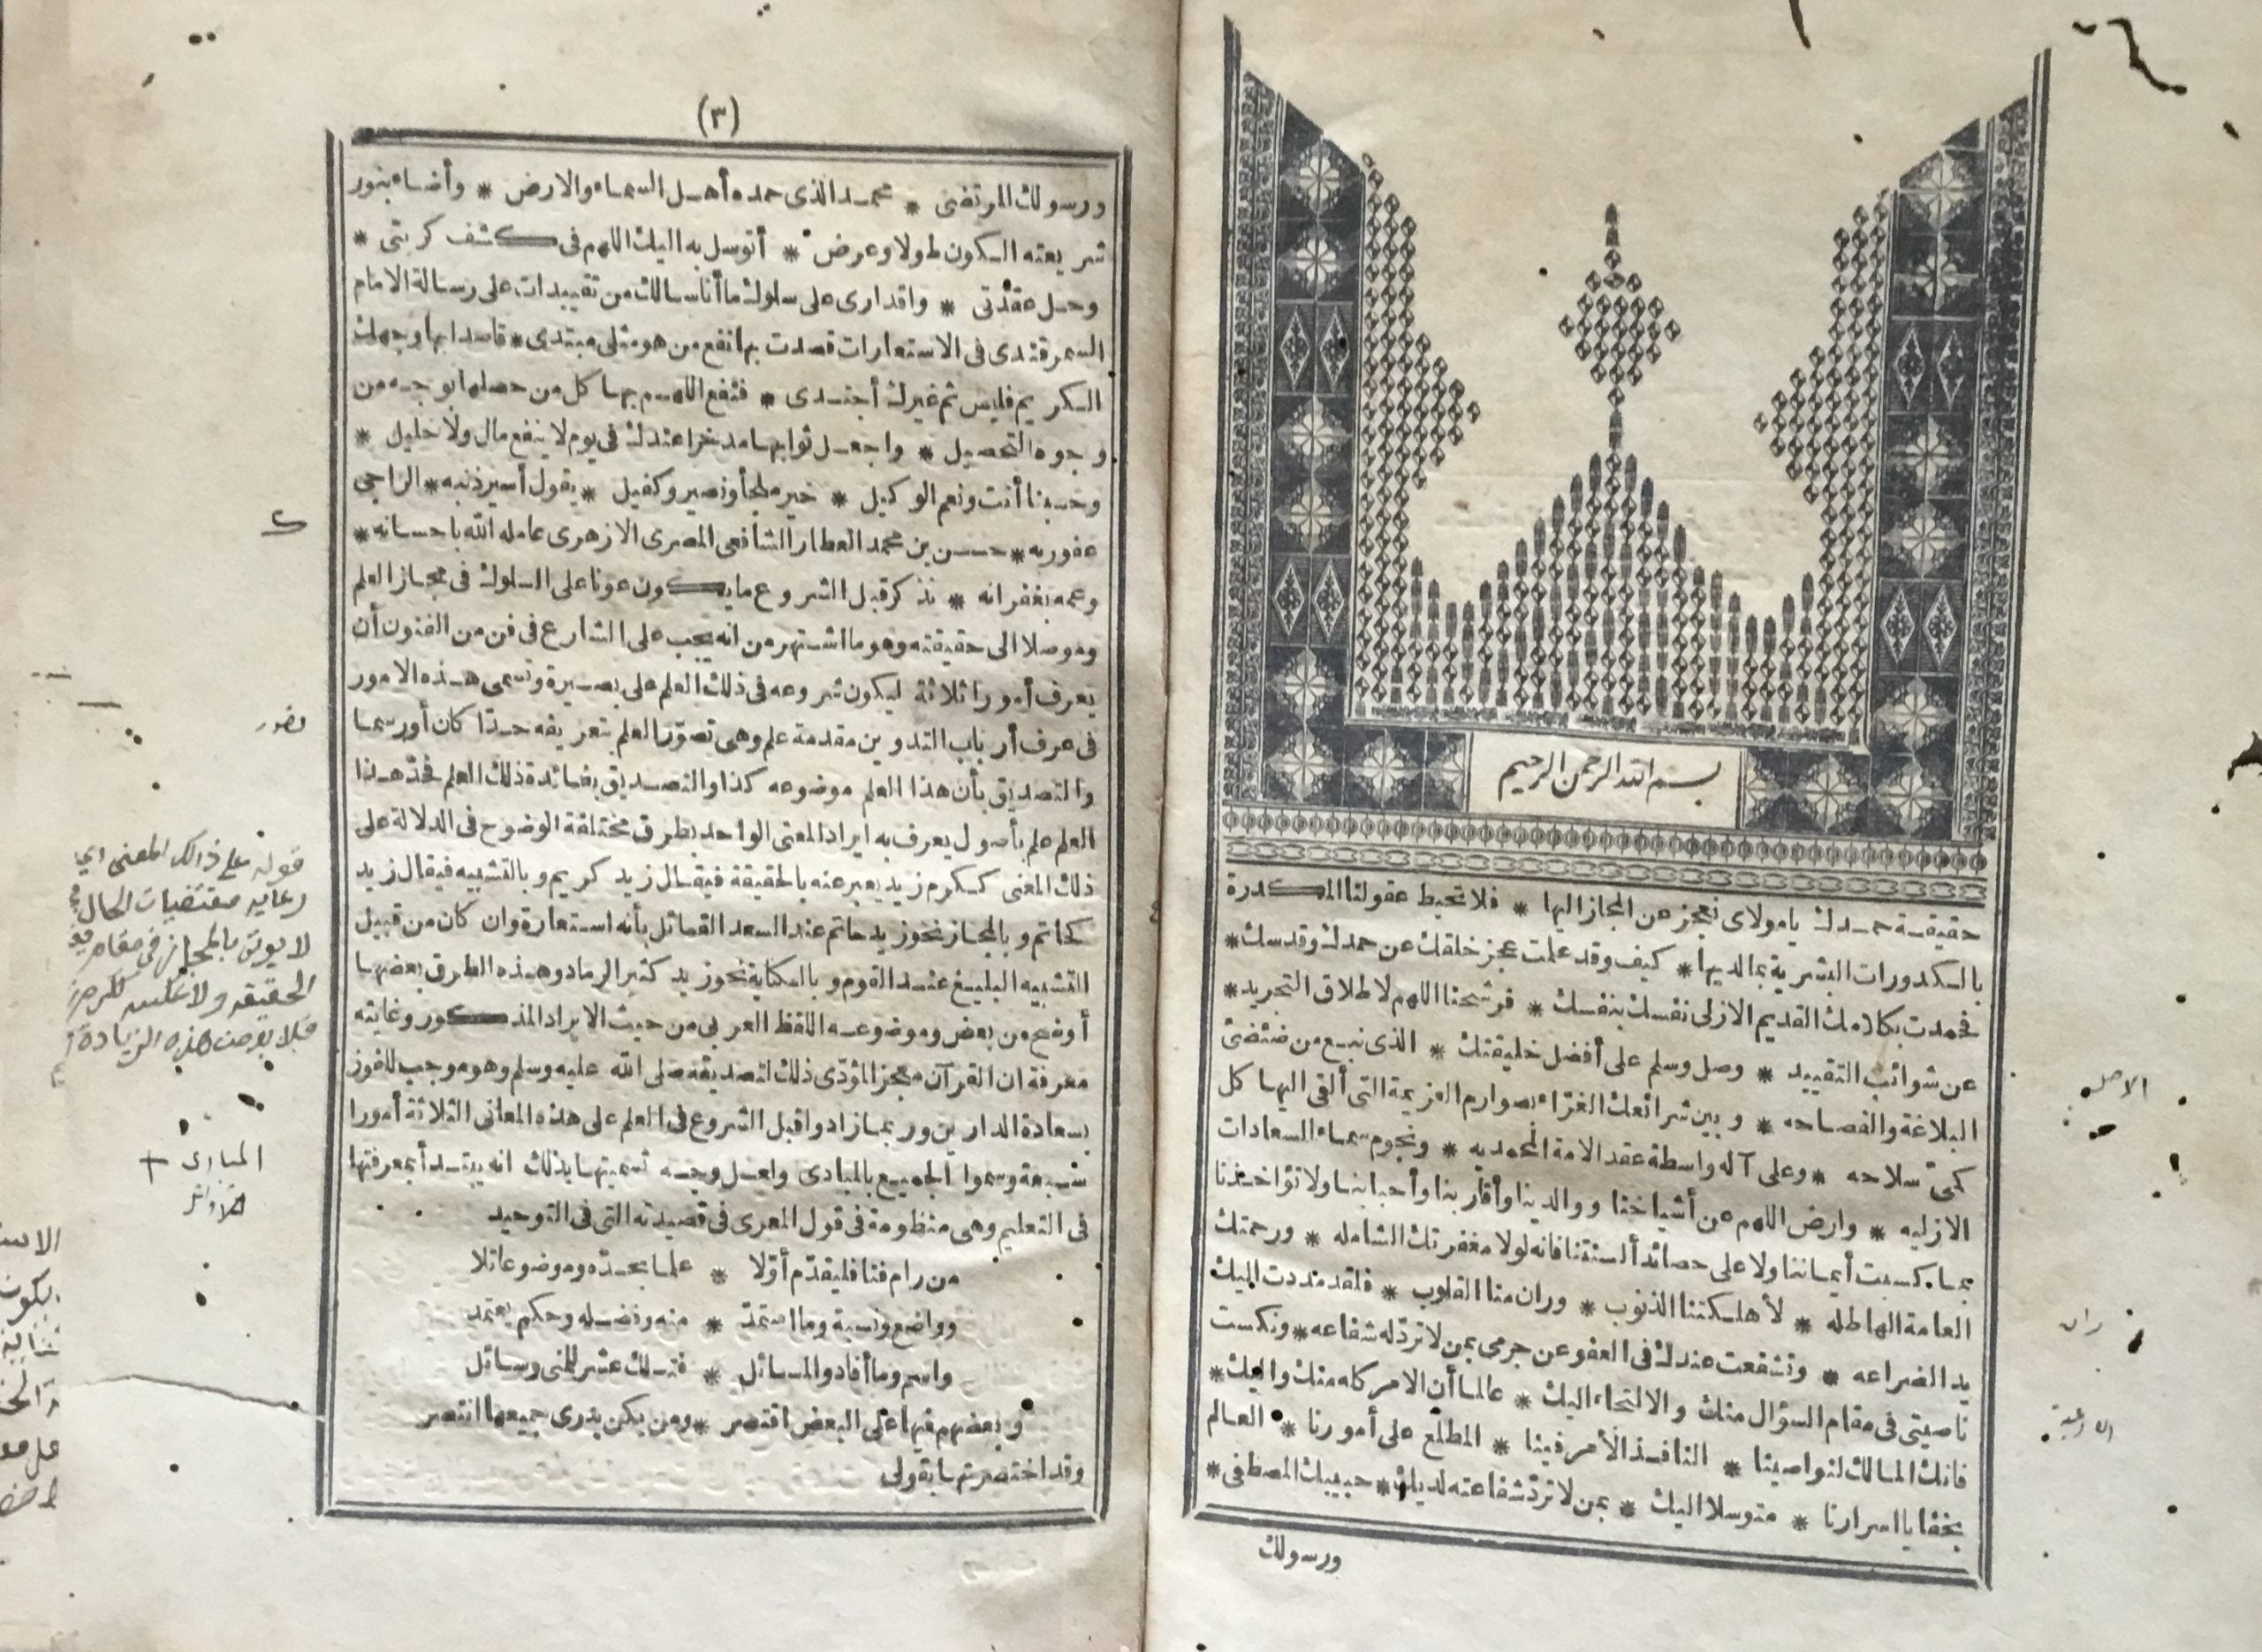 بسم الله الرحمن الرحيم
حقيقة حمدك يا مولاى نعجز عن المجاز اليها * فلا تحيط عقولنا المكدرة
بالكدورات البشرية بما لديها * كيف وقد علمت عجز خلقك عن حمدك وقدسك *
فحمدت بكلامك القديم الازلى نفسك بنفسك * فرشحنا اللهم لاطلاق التجريد *
عن شوائب التقييد * وصل وسلم على أفضل خليقتك * الذى نبع من ضئضئ
البلاغة والفصاحه * وبين شرائعك الغراء بصوارم العزيمة التى ألقى اليها كل
كمىّ سلاحه * وعلى آله واسطة عقد الامة المحمديه * ونجوم سماء السعادات
الازليه * وارض اللهم عن أشياخنا ووالدينا وأقاربنا وأحبابنا ولا تؤاخذنا
بما كسبت أيماننا ولا على حصائد ألسنتنا فانه لولا مغفرتك الشامله * ورحمتك
العامة الهاطله * لأهلكتنا الذنوب * وران منا القلوب * فلقد مددت اليك
يد الضراعه * وتشفعت عندك فى العفو عن جرمى بمن لا تردّ له شفاعه * ونكست
ناصيتى فى مقام السؤال منك والالتجاء اليك * عالما أن الامر كله منك واليك *
فانك المالك لنواصينا * النافذ الأمر فينا * المطلع على أمورنا * العالم
بخفايا اسرارنا * متوسلا اليك * بمن لا تردّ شفاعته لديك * حبيبك المصطفى *
ورسولك
الاصل
ران
(٣)
ورسولك المرتضى * محمد الذى حمده أهل السماء والارض * وأضاء بنور
شريعته الكون طولا وعرض * أتوسل به اليك اللهم فى كشف كربتى *
وحل عقدتى * واقدارى على سلوك ما أنا سالك من تقييدات على رسالة الامام
السمرقندى فى الاستعارات قصدت بها نفع من هو مثلى مبتدى * قاصدا بها وجهك
الكريم فليس ثم غيرك أجتدى * فنفع اللهم بها كل من حصلها بوجه من
وجوه التحصيل * واجعل ثوابها مدخرا عندك فى يوم لا ينفع مال ولا خليل *
وحسبنا أنت ونعم الوكيل * خير ملجأ ونصير وكفيل * يقول أسير ذنبه * الراجى
عفوربه * حسن بن محمد العطار الشافعى المصرى الازهرى عامله الله باحسانه *
وعمه بغفرانه * نذكر قبل الشروع ما يكون عونا على السلوك فى مجاز العلم
وموصلا الى حقيقته وهو ما اشتهر من انه يجب على الشارع فى فن من الفنون أن
يعرف أمورا ثلاثة ليكون شروعه فى ذلك العلم على بصيرة وتسمى هذه الامور
فى عرف أرباب التدوين مقدمة علم وهى تصوّر العلم بتعريفه حدّا كان أو رسما
والتصديق بأن هذا العلم موضوعه كذا والتصديق بفائدة ذلك العلم فحدّ هذا
العلم علم بأصول يعرف به ايراد المعنى الواحد بطرق مختلفة الوضوح فى الدلالة على
ذلك المعنى ككرم زيد يعبر عنه بالحقيقة فيقال زيد كريم وبالتشبيه فيقال زيد
كحاتم وبالمجاز نحو زيد حاتم عند السعد القائل بأنه استعارة وان كان من قبيل
التشبيه البليغ عند القوم وبالكناية نحو زيد كثير الرماد وهذه الطرق بعضها
أوضح من بعض وموضوعه اللفظ العربى من حيث الايراد المذكور وغايته
معرفة ان القرآن معجز المؤدّى ذلك لتصديقه صلى الله عليه وسلم وهو موجب للفوز
بسعادة الدارين وربما زادوا قبل الشروع فى العلم على هذه المعانى الثلاثة أمورا
سبعة وسموا الجميع بالمبادى ولعل وجه تسميتها بذلك انه يبتدأ بمعرفتها
فى التعليم وهى منظومة فى قول المعرى فى قصيدته التى فى التوحيد
من رام فنا فليقدّم أوّلا * علما بحدّه وموضوع تلا
وواضع ونسبة وما استمدّ * منه وفضله وحكم يعتمد
واسم وما أفاد والمسائل * فتلك عشر للمنى وسائل
وبعضهم فيها على البعض اقتصر * ومن يكن يدرى جميعها انتصر
وقد اختصرتها بقولى
قوله على ذالك المعنى اي
رعاية مقتضيات الحال
لا يوتى بالمجاز فى مقام
الحقيقه ولا عكسه
فلا بد من هذه الزيادة
المبادى +